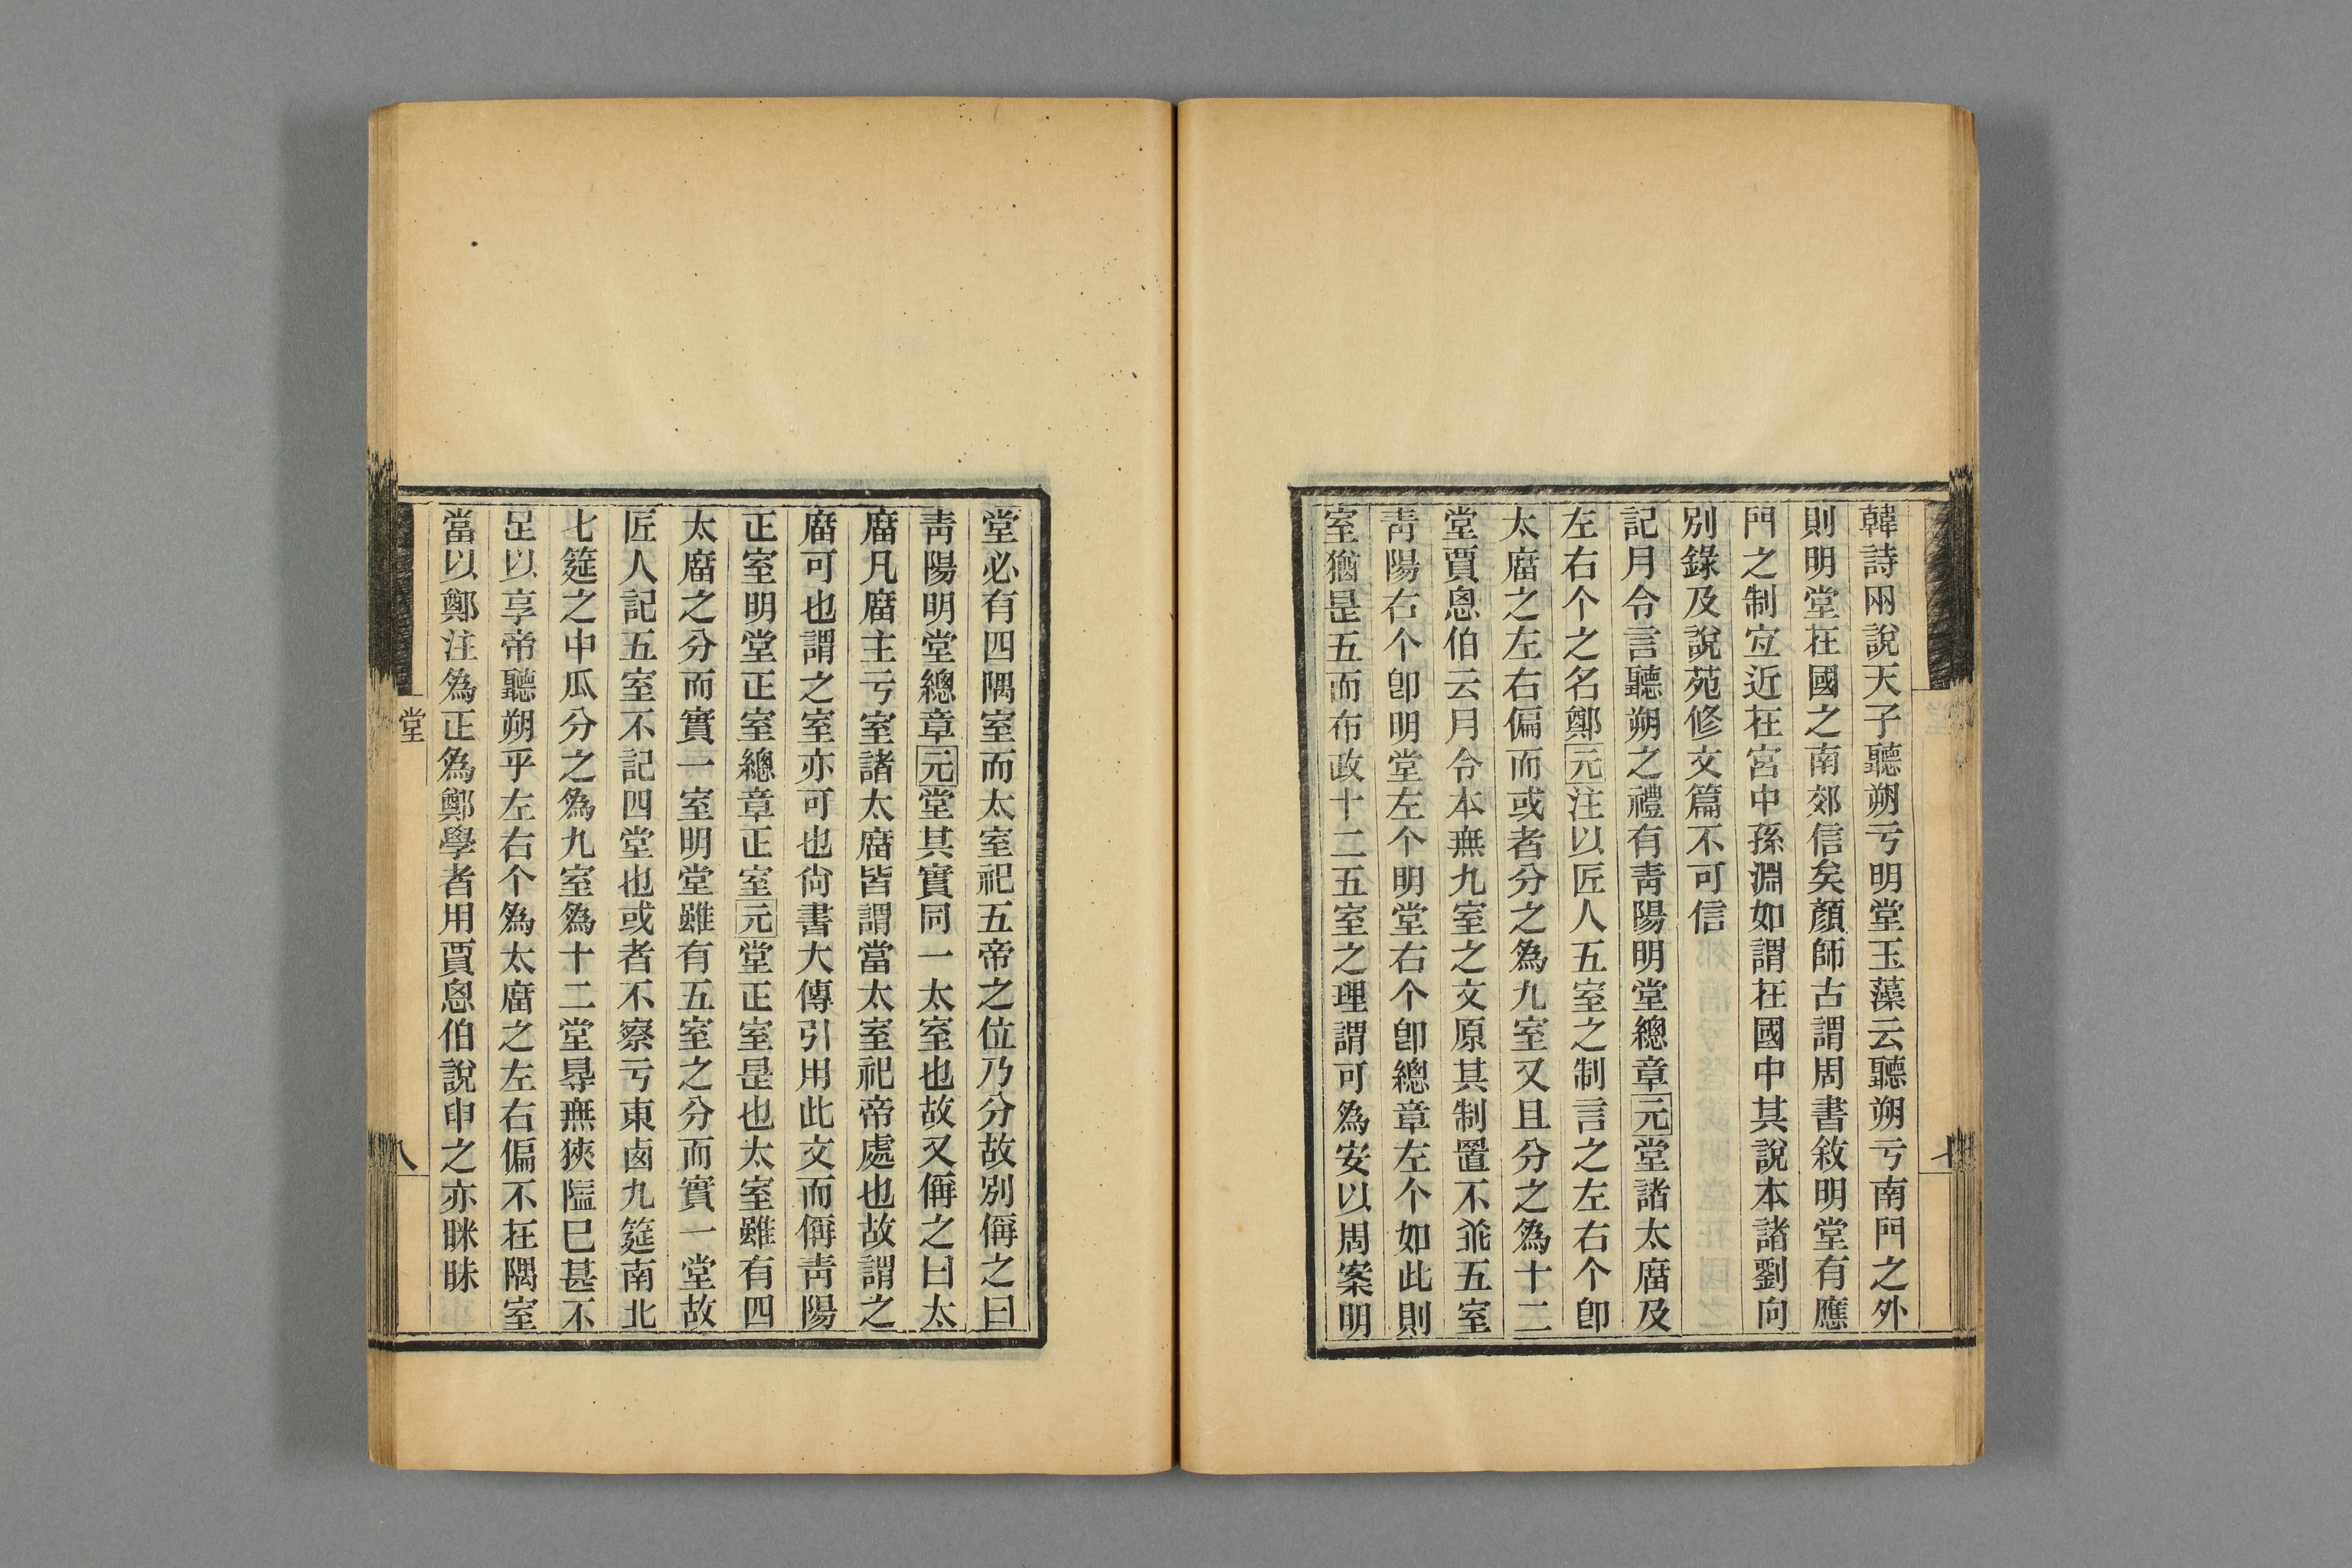 韓詩兩說天子聽朔亏明堂玉藻云聽朔亏南門之外
則明堂在國之南郊信矣顏師古謂周書敘明堂有應
門之制宐近在宮中孫淵如謂在國中其說本諸劉向
別錄及說苑修文篇不可信
記月令言聽朔之禮有靑陽明堂總章元堂諸太廟及
左右个之名鄭元注以匠人五室之制言之左右个卽
太廟之左右偏而或者分之爲九室又且分之爲十二
堂賈恖伯云月令本無九室之文原其制置不乖五室
靑陽右个卽明堂左个明堂右个卽總章左个如此則
室猶昰五而布政十二五室之理謂可爲安以周案明
堂必有四隅室而太室祀五帝之位乃分故別偁之曰
靑陽明堂總章元堂其實同一太室也故又偁之曰太
廟凡廟主亏室諸太廟皆謂當太室祀帝處也故謂之
廟可也謂之室亦可也尙書大傳引用此文而偁靑陽
正室明堂正室總章正室元堂正室昰也太室雖有四
太廟之分而實一室明堂雖有五室之分而實一堂故
匠人記五室不記四堂也或者不察亏東鹵九筵南北
七筵之中瓜分之爲九室爲十二堂㝵無狹隘巳甚不
足以享帝聽朔乎左右个爲太廟之左右偏不在隅室
當以鄭注爲正爲鄭學者用賈恖伯說申之亦眯昧
堂
八
七